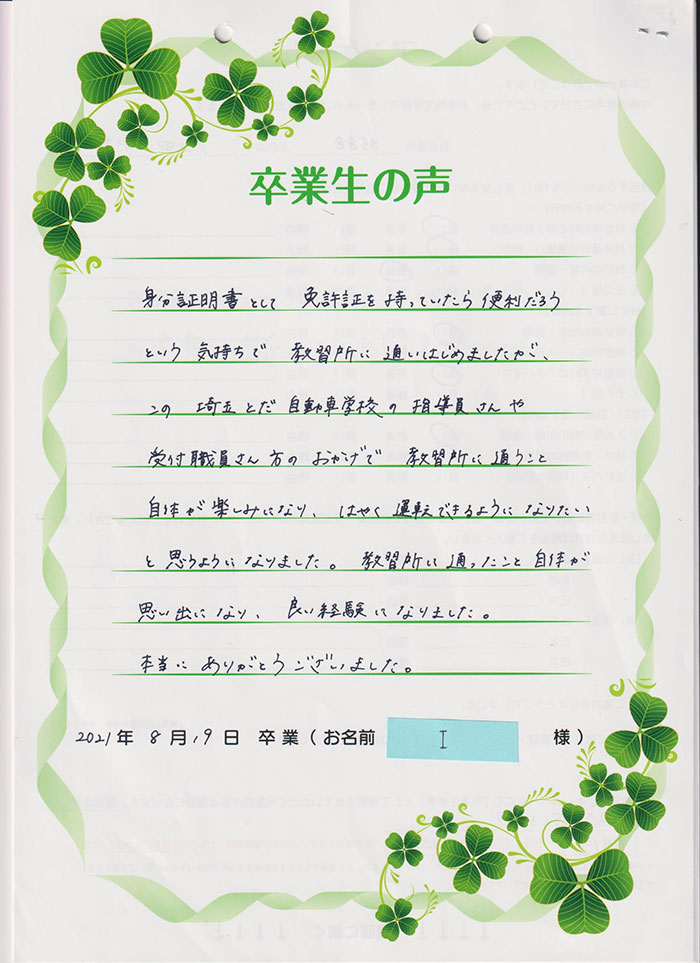 卒業生の声
身分証明書として 免許証を持っていたら便利だろう
という 気持ちで 教習所に 通いはじめましたが、
この 埼玉とだ 自動車学校の 指導員さんや
受付職員さん方の おかげで 教習所に通うこと
自体が 楽しみになり、はやく 運転できるようになりたい
と思うようになりました。教習所に通ったこと自体が
思い出になり、良い経験になりました。
本当に ありがとうございました。
2021年 8月19日 卒業(お名前 I 様)